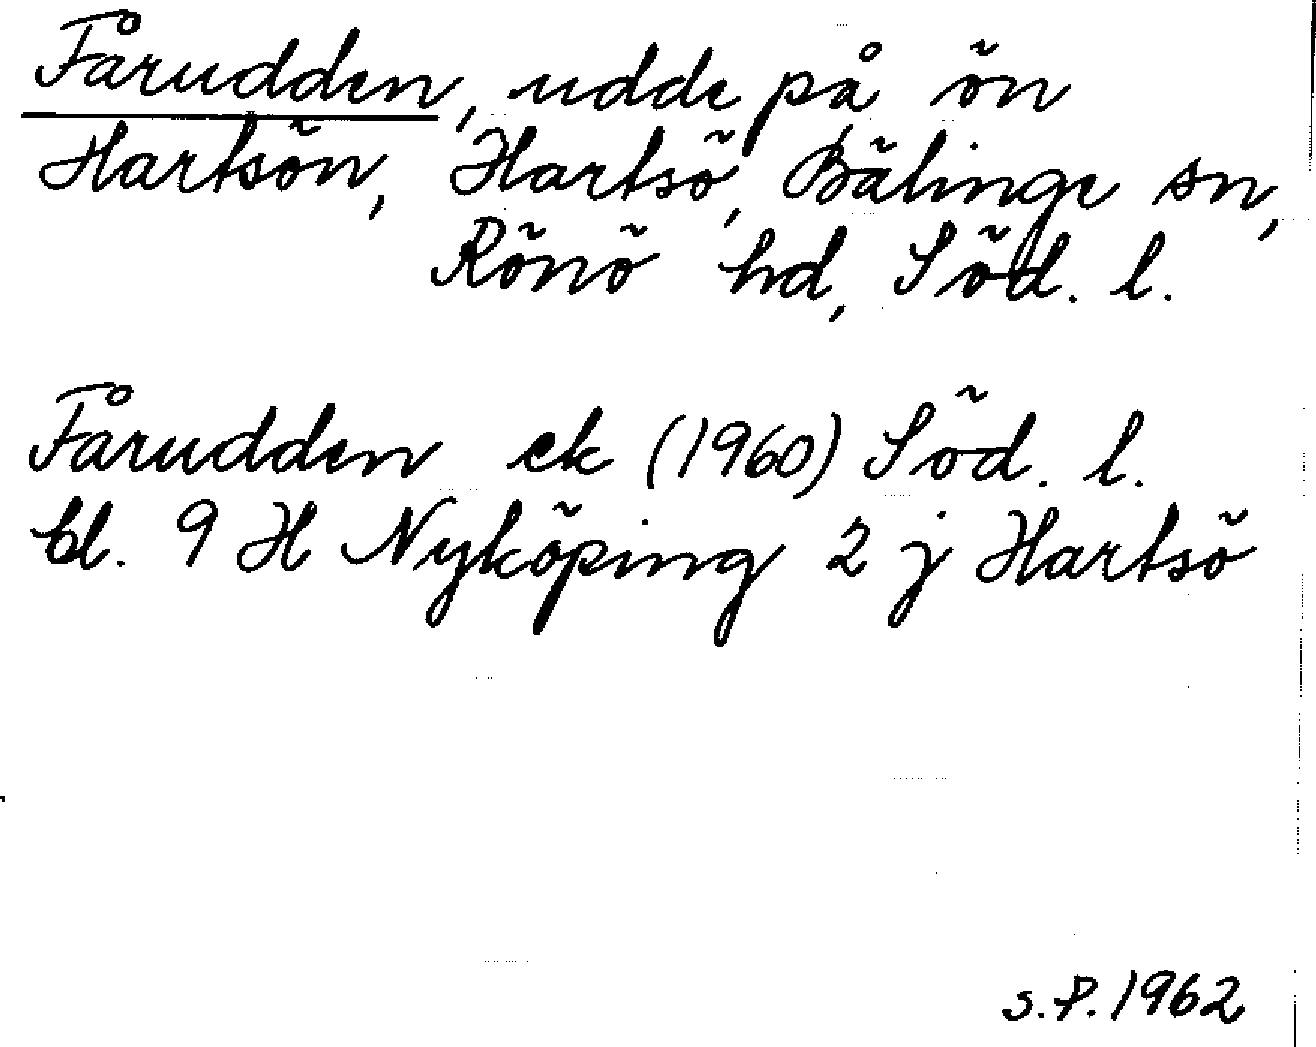 Fårudden, udde på ön
Hartsön, Hartsö, Bälinge sn,
Rönö hd, Söd. l.
Fårudden ek (1960) Söd. l.
bl. 9 H Nyköping 2 j Hartsö
S.P. 1962